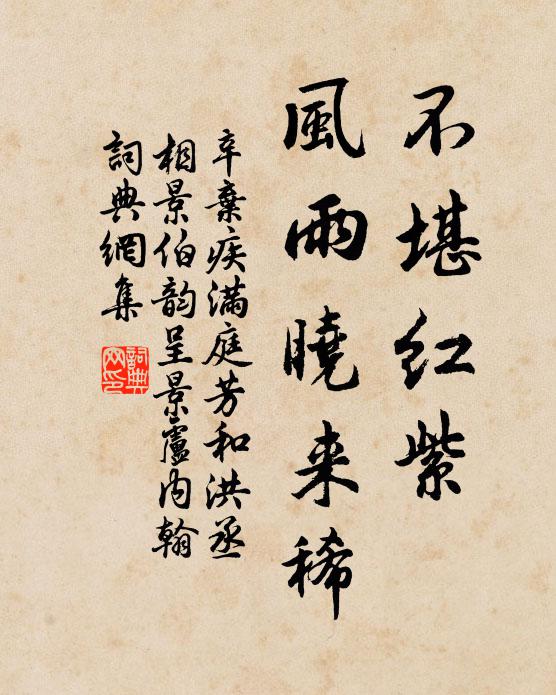 不堪红紫
風雨曉来稀
辛棄疾满庭芳和洪丞
相景伯韵呈景廬内翰
詞典網集
詞典網印